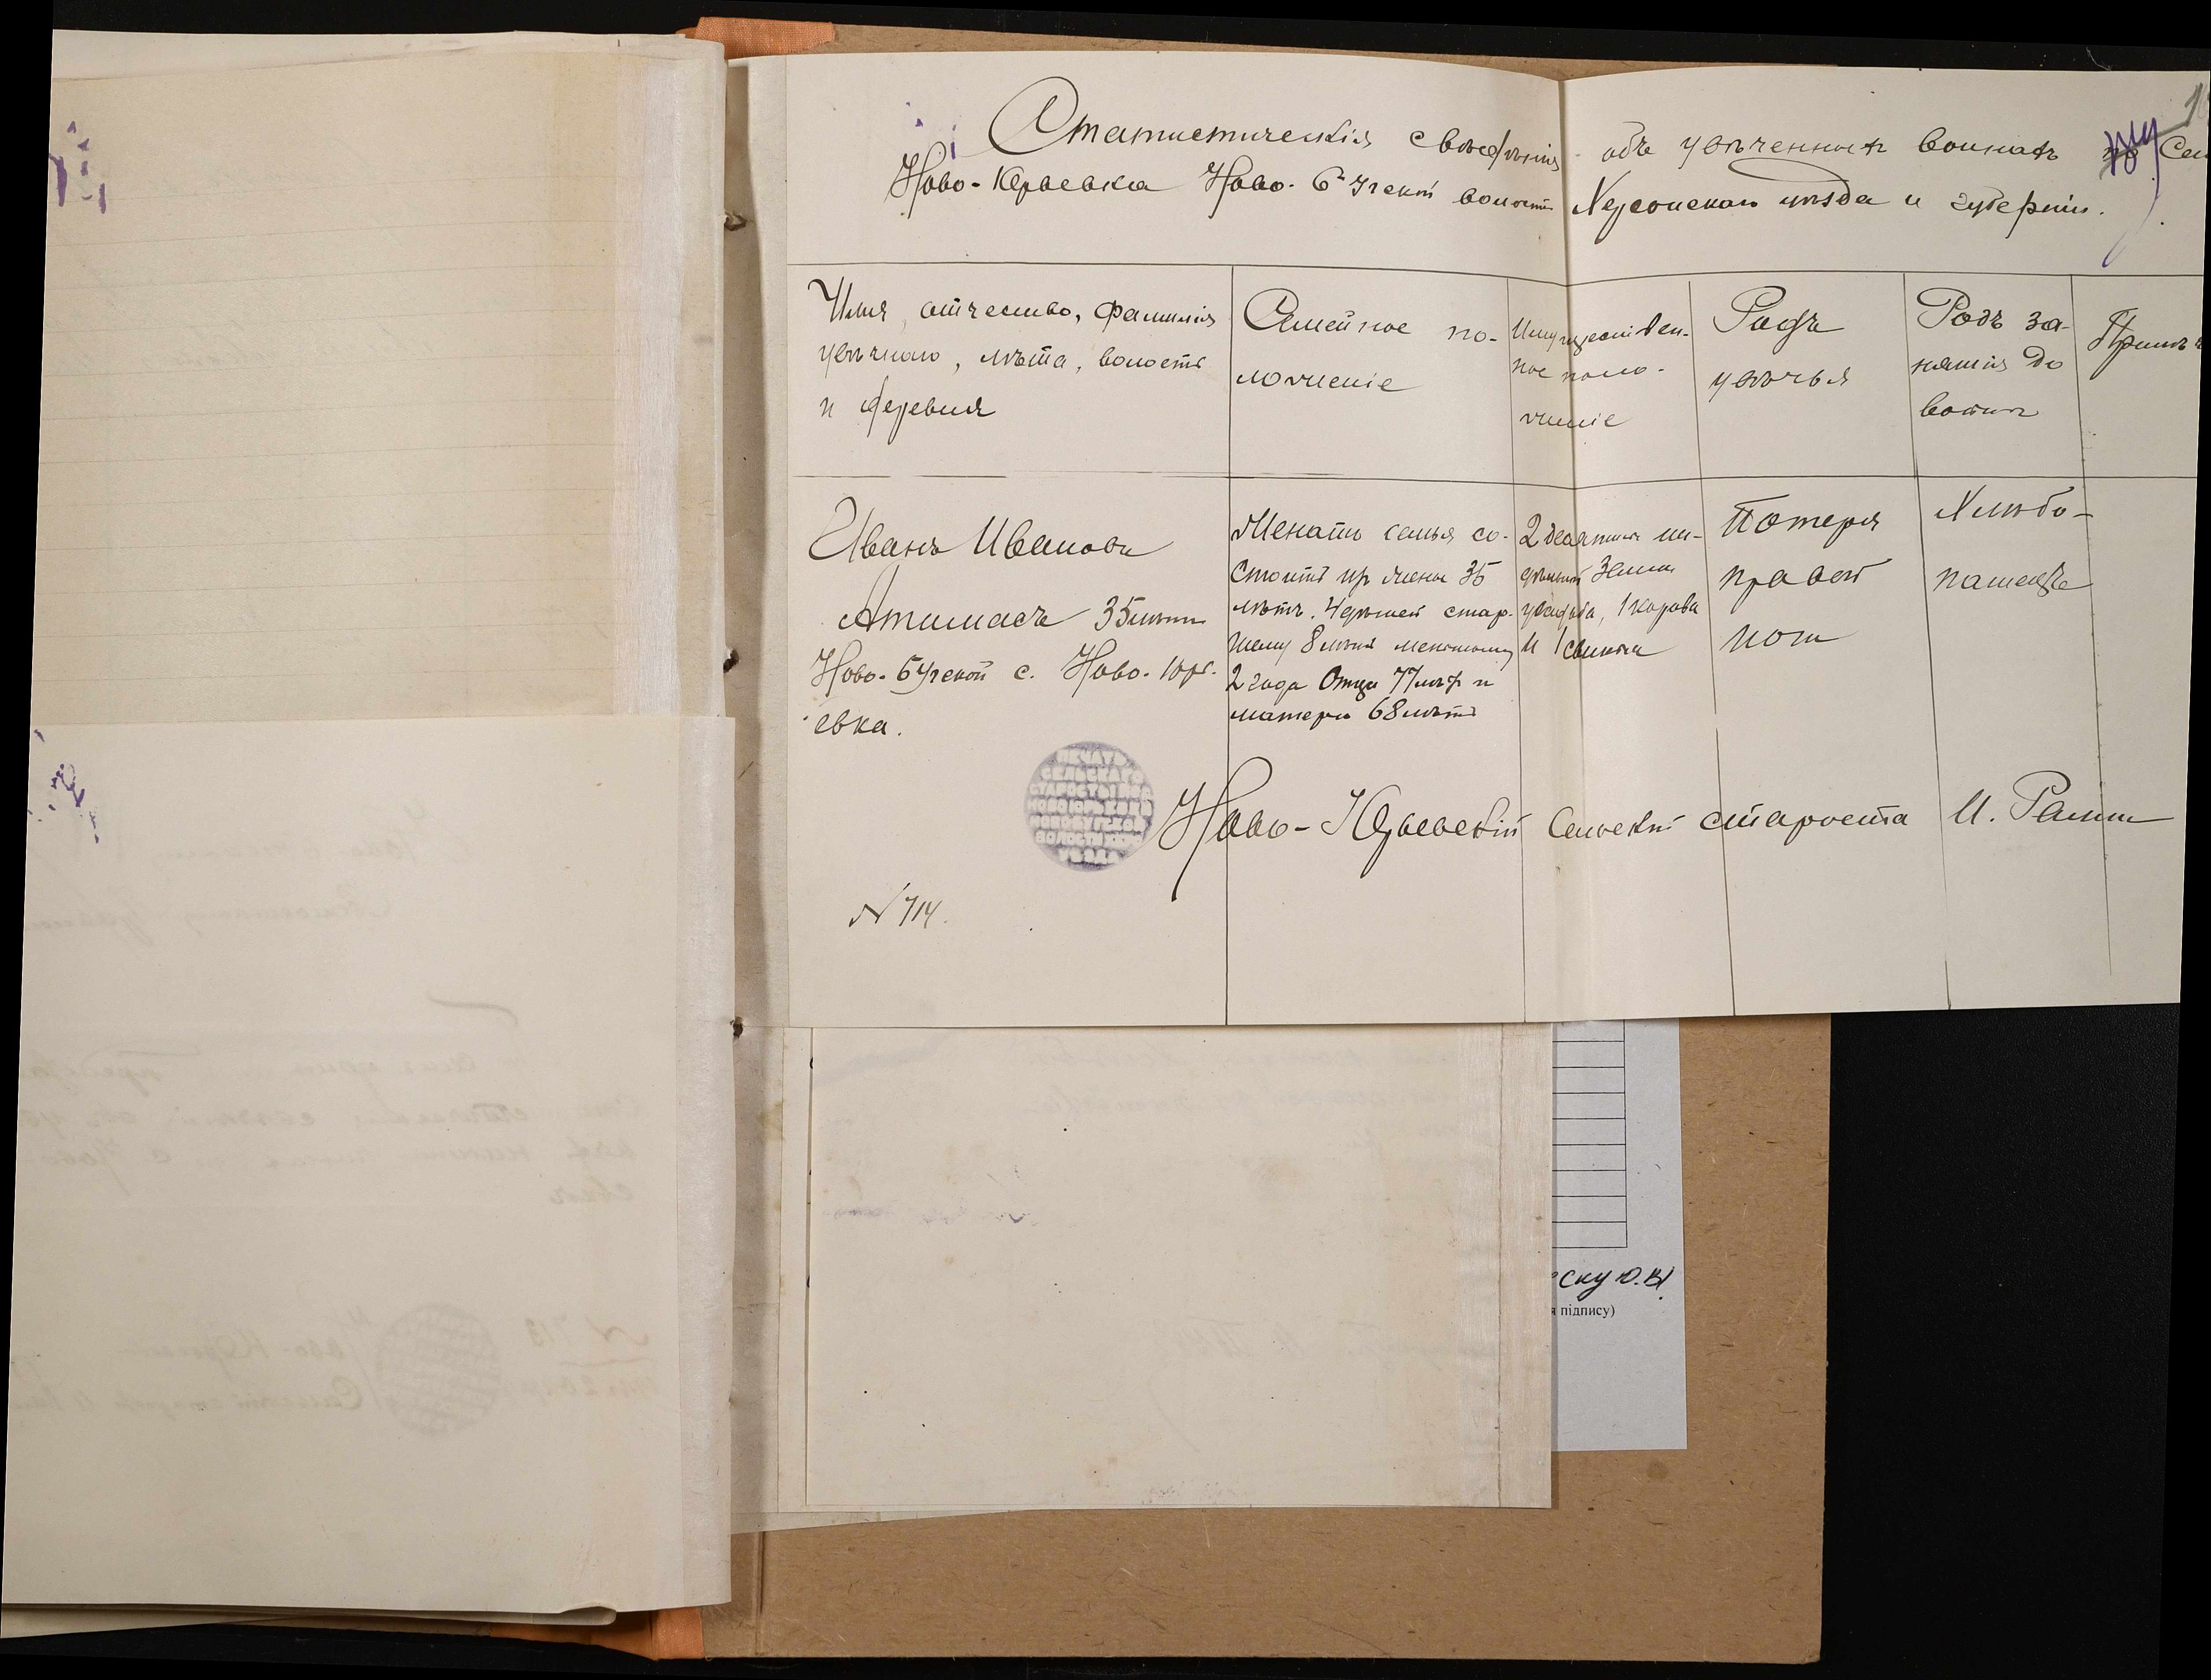 Статистическія свѣдѣнія объ увѣченныхъ воинахъ по Сел
Ново-Юрьевка Ново-Бугской волости Херсонскаго уѣзда и губерніи.
Имя, отчество, фамилія
увѣчнаго, лѣта, волость
и деревня
Семейное по-
ложеніе
Имуществен-
ное поло-
женіе
Родъ
увѣчья
Родъ за-
нятія до
войны
Примѣч
Иванъ Ивановъ
35 лѣтъ
Ново-Бугской с. Ново-Юрь-
евка.
Женатъ семья со-
стоитъ изъ жены 35
лѣтъ, 4 дѣтей стар-
шему 8 лѣтъ меньшому
2 года Отца 77 лѣтъ и
матери 68 лѣтъ
2 десятины на-
дѣльной земли
усадьба, 1 корова
и 1 свинья
Потеря
правой
ноги
Хлѣбо-
пашецъ
ПЕЧАТЬ
СЕЛЬСКАГО
СТАРОСТЫ
Ново-Юрьевскій Сельскій староста И.
№ 714.
ску Ю.В.
підпису)